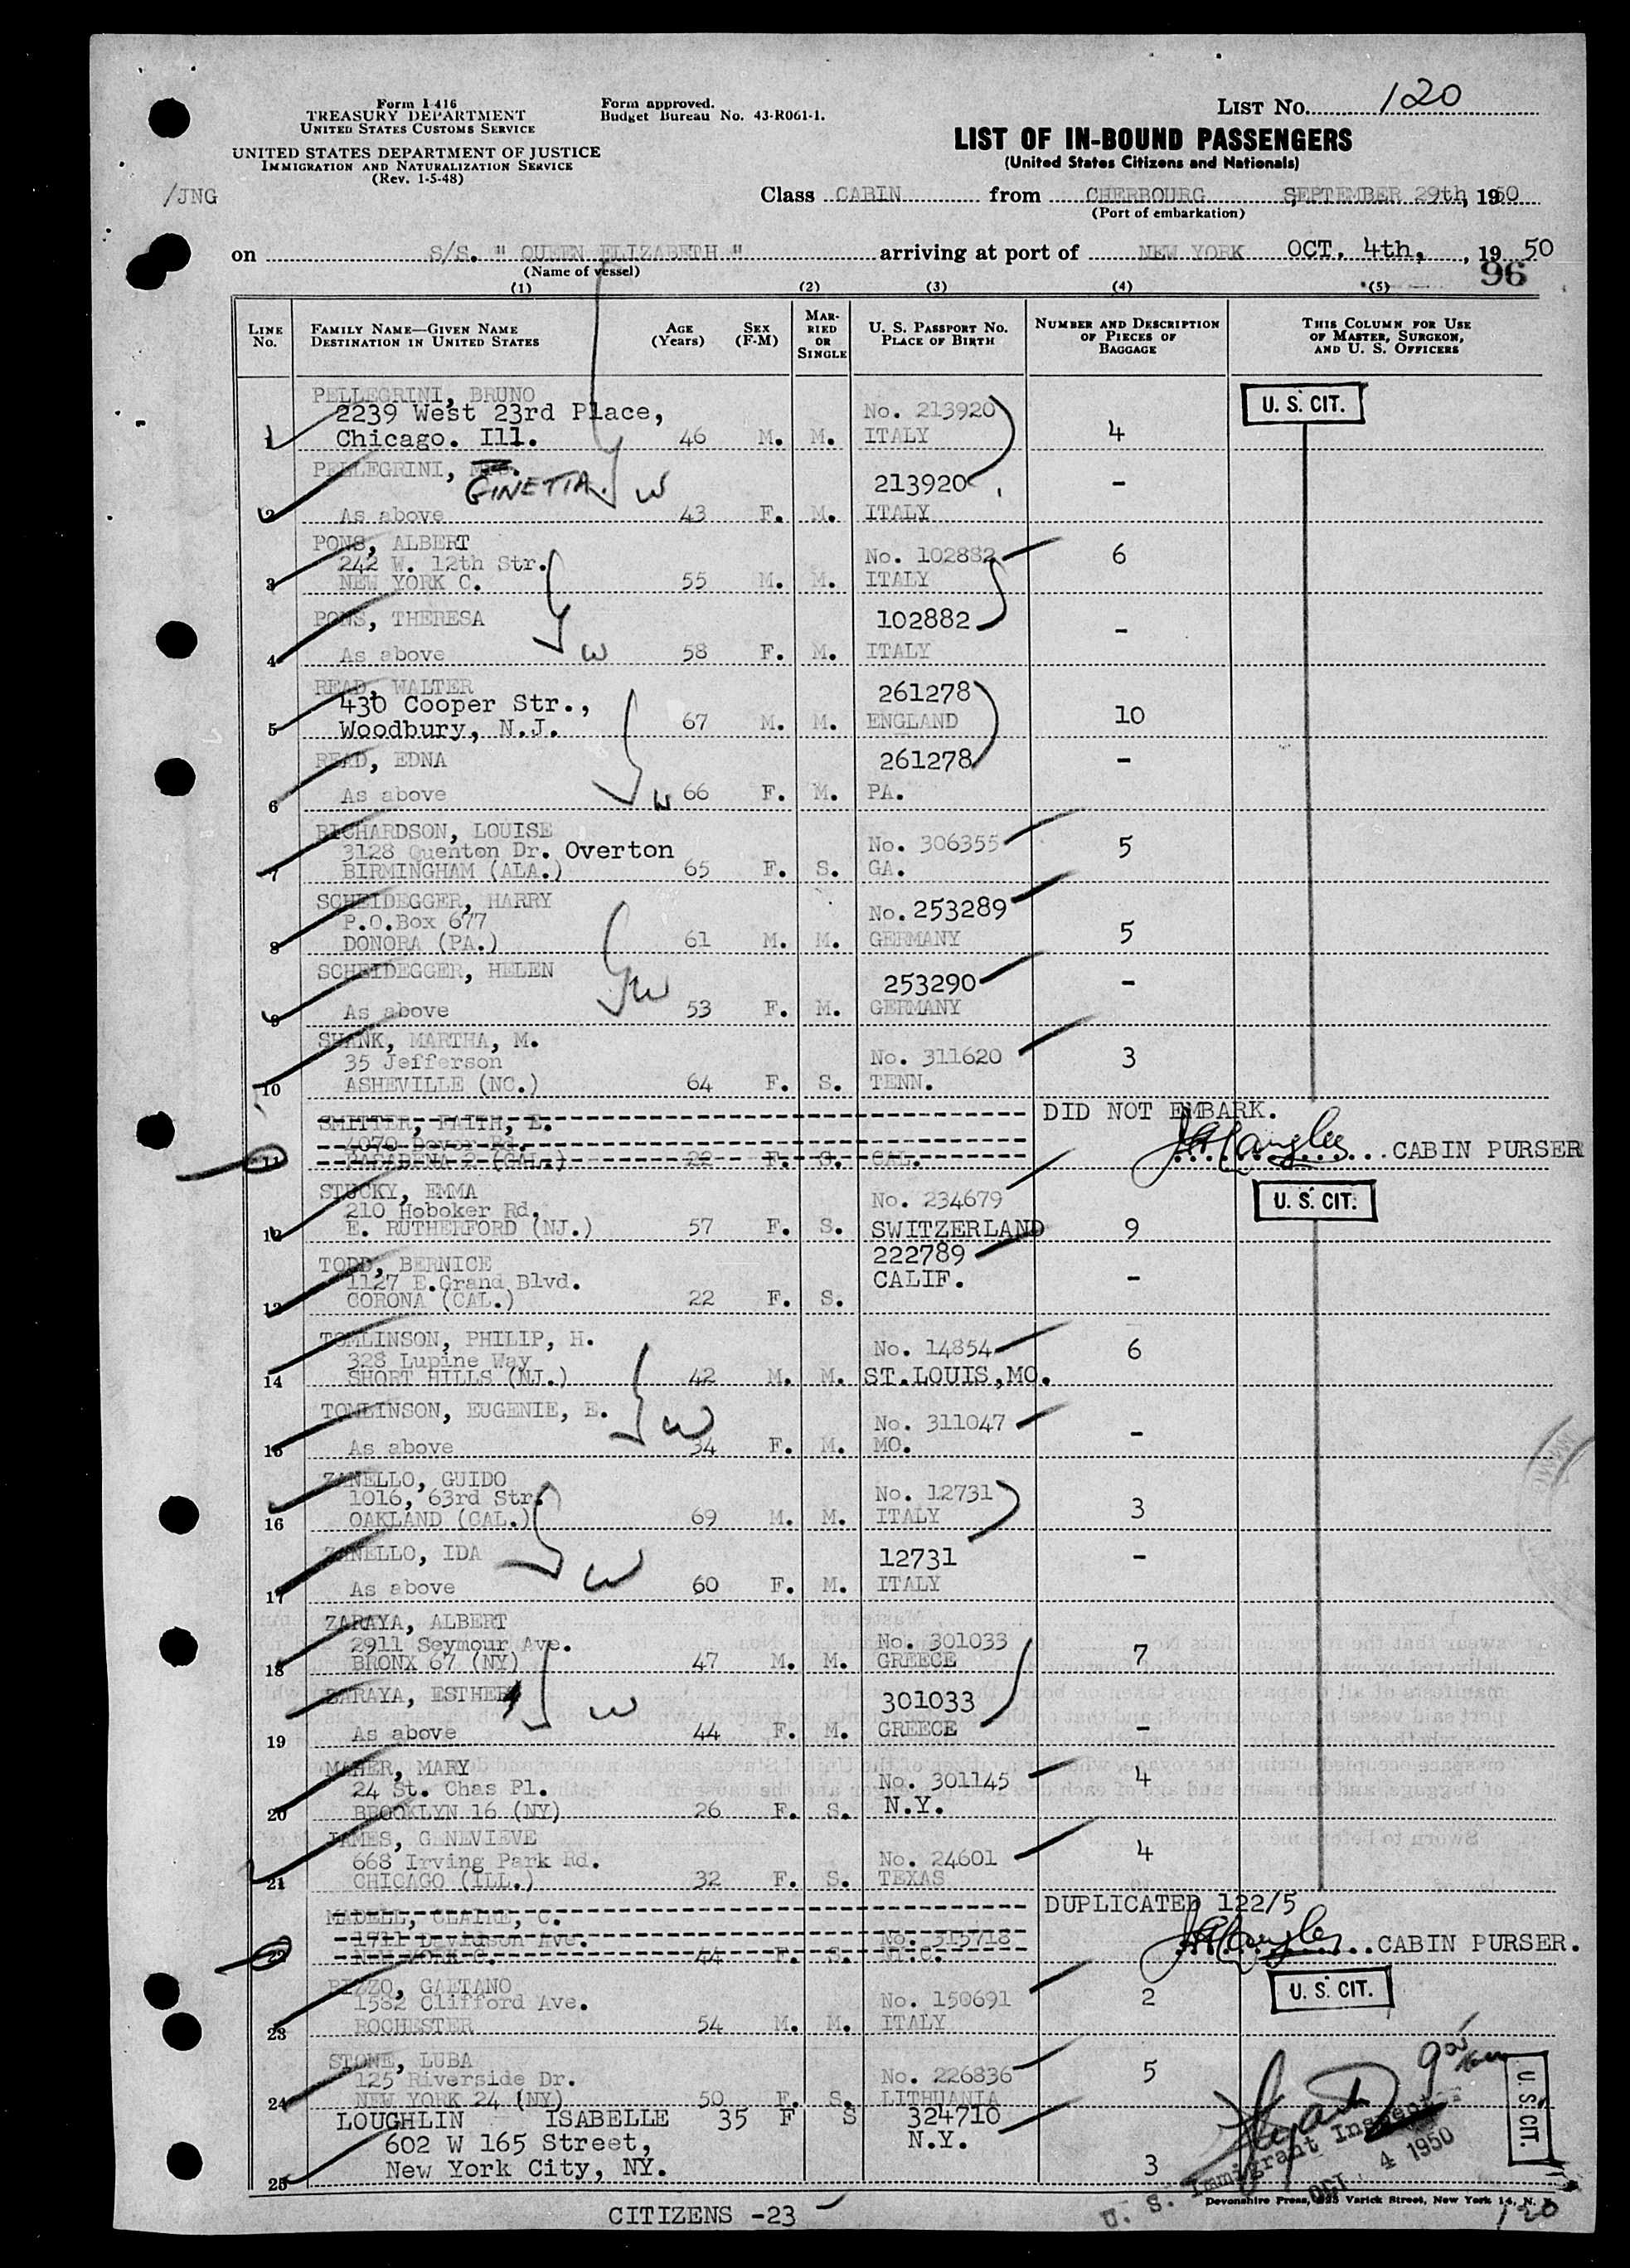 Form I-416
TREASURY DEPARTMENT
UNITED STATES CUSTOMS SERVICE
UNITED STATES DEPARTMENT OF JUSTICE
IMMIGRATION AND NATURALIZATION SERVICE
(Rev. 1-5-48)
Form approved.
Budget Bureau No. 43-R061-1.
LIST No. 120
LIST OF IN-BOUND PASSENGERS
(United States Citizens and Nationals)
/JNG
Class CABIN from CHERBOURG, SEPTEMBER 29th, 1950
(Port of embarkation)
on S/S. " QUEEN ELIZABETH " arriving at port of NEW YORK OCT. 4th, , 19 50
(Name of vessel)
96
(1) (2) (3) (4) (5)
LINE No. FAMILY NAME—GIVEN NAME DESTINATION IN UNITED STATES AGE (Years) SEX (F-M) MARRIED OR SINGLE U. S. PASSPORT No. PLACE OF BIRTH NUMBER AND DESCRIPTION OF PIECES OF BAGGAGE THIS COLUMN FOR USE OF MASTER, SURGEON, AND U. S. OFFICERS
PELLEGRINI, BRUNO
2239 West 23rd Place, No. 213920 U. S. CIT.
1 Chicago. Ill. 46 M. M. ITALY 4
PELLEGRINI, MRS.
GINETTA W 213920 -
2 As above 43 F. M. ITALY
PONS, ALBERT
242 W. 12th Str. No. 102882 6
3 NEW YORK C. 55 M. M. ITALY
PONS, THERESA 102882 -
4 As above W 58 F. M. ITALY
READ, WALTER 261278
430 Cooper Str.,
5 Woodbury, N.J. 67 M. M. ENGLAND 10
READ, EDNA 261278 -
6 As above W 66 F. M. PA.
RICHARDSON, LOUISE
3128 Quenton Dr. Overton No. 306355 5
7 BIRMINGHAM (ALA.) 65 F. S. GA.
SCHEIDEGGER, HARRY
P.O.Box 677 No. 253289
8 DONORA (PA.) 61 M. M. GERMANY 5
SCHEIDEGGER, HELEN 253290 -
9 As above W 53 F. M. GERMANY
SHANK, MARTHA, M.
35 Jefferson No. 311620 3
10 ASHEVILLE (NC.) 64 F. S. TENN.
SMITTER, FAITH, E. DID NOT EMBARK.
4070 Dover Rd.
11 PASADENA 2 (CAL.) 22 F. S. CAL. CABIN PURSER
STUCKY, EMMA No. 234679 U. S. CIT.
210 Hoboker Rd.
12 E. RUTHERFORD (NJ.) 57 F. S. SWITZERLAND 9
TODD, BERNICE 222789
1127 E.Grand Blvd. CALIF. -
13 CORONA (CAL.) 22 F. S.
TOMLINSON, PHILIP, H.
328 Lupine Way No. 14854 6
14 SHORT HILLS (NJ.) 42 M. M. ST.LOUIS,MO.
TOMLINSON, EUGENIE, E. W No. 311047 -
15 As above 34 F. M. MO.
ZANELLO, GUIDO
1016, 63rd Str. No. 12731 3
16 OAKLAND (CAL.) 69 M. M. ITALY
ZANELLO, IDA 12731 -
17 As above W 60 F. M. ITALY
ZARAYA, ALBERT
2911 Seymour Ave. No. 301033 7
18 BRONX 67 (NY) 47 M. M. GREECE
ZARAYA, ESTHER W 301033
19 As above 44 F. M. GREECE -
MAHER, MARY
24 St. Chas Pl. No. 301145 4
20 BROOKLYN 16 (NY) 26 F. S. N.Y.
JAMES, GENEVIEVE
668 Irving Park Rd. No. 24601 4
21 CHICAGO (ILL.) 32 F. S. TEXAS
MADELL, CLAIRE, C. DUPLICATED 122/5
1711 Davidson Ave. No. 315718
22 NEW YORK C. 44 F. S. CABIN PURSER.
RIZZO, GAETANO
1582 Clifford Ave. No. 150691 2 U. S. CIT.
23 ROCHESTER 54 M. M. ITALY
STONE, LUBA
125 Riverside Dr. No. 226836 5
24 NEW YORK 24 (NY) 50 F. S. LITHUANIA
LOUGHLIN ISABELLE 35 F S 324710
602 W 165 Street, N.Y.
25 New York City, NY. 3
U. S. CIT.
U. S. Immigrant Inspector
OCT 4 1950
Devonshire Press, 225 Varick Street, New York 14, N. Y.
CITIZENS -23
120